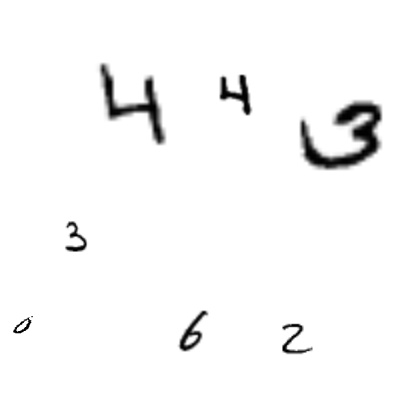 4 4 3
3
0 6 2